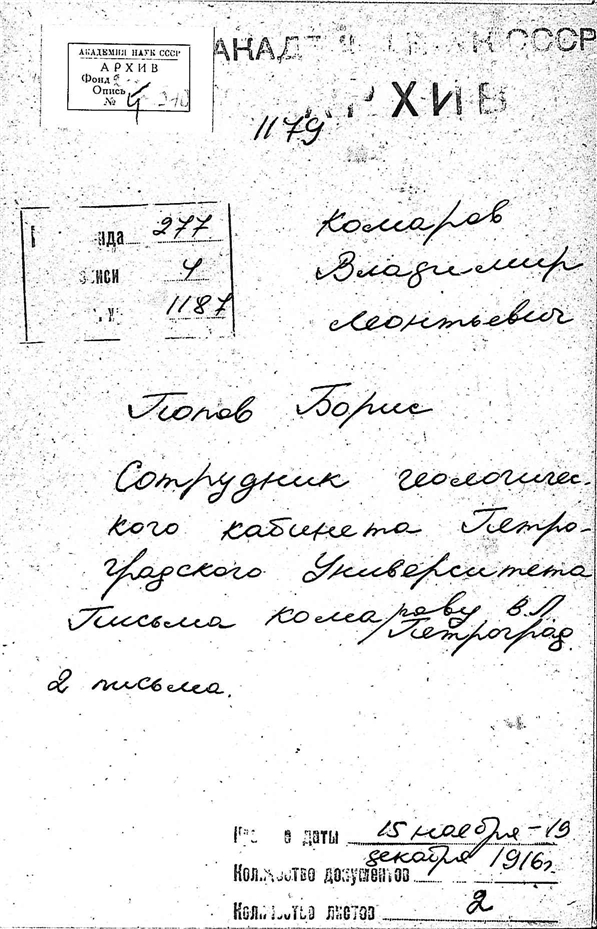 АКАДЕМИЯ НАУК СССР
АРХИВ
Фонд
Опись
№
СССР
АРХИВ
1179
277
4
1187
Комаров
Владимир
Леонтьевич
Попов Борис
Сотрудник геологичес-
кого кабинета Петро-
градского Университета
Письма Комарову В.Л.
Петроград
2 письма.
даты 15 ноября - 19
декабря 1916г.
Количество документов
Количество листов 2